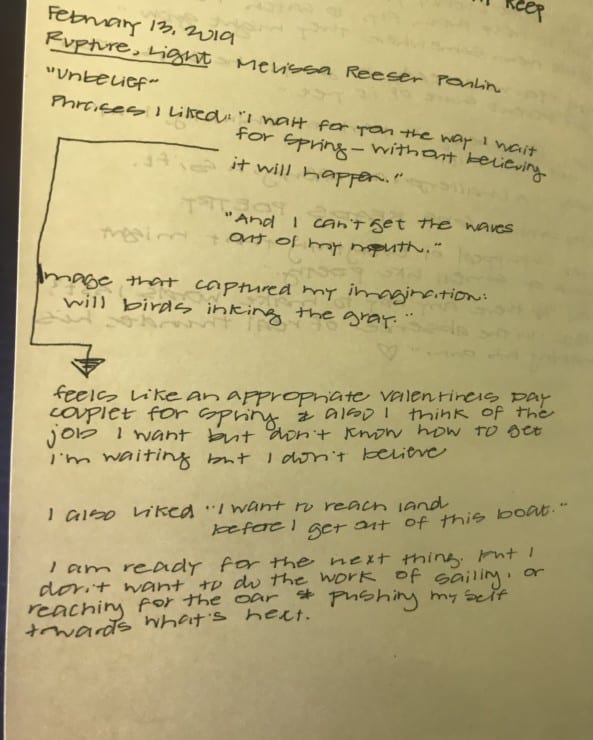 Keep
February 13, 2019
Rupture, Light Melissa Reeser Poulin
"Unbelief"
Phrases I liked: "I wait for you the way I wait
for spring – without believing
it will happen."
"And I can't get the waves
out of my mouth."
Image that captured my imagination:
will birds inking the gray."
feels like an appropriate valentine's day
couplet for spring & also I think of the
job I want but don't know how to get
I'm waiting but I don't believe
I also liked "I want to reach land
before I get out of this boat."
I am ready for the next thing. but I
don't want to do the work of sailing, or
reaching for the oar & pushing myself
towards what's next.